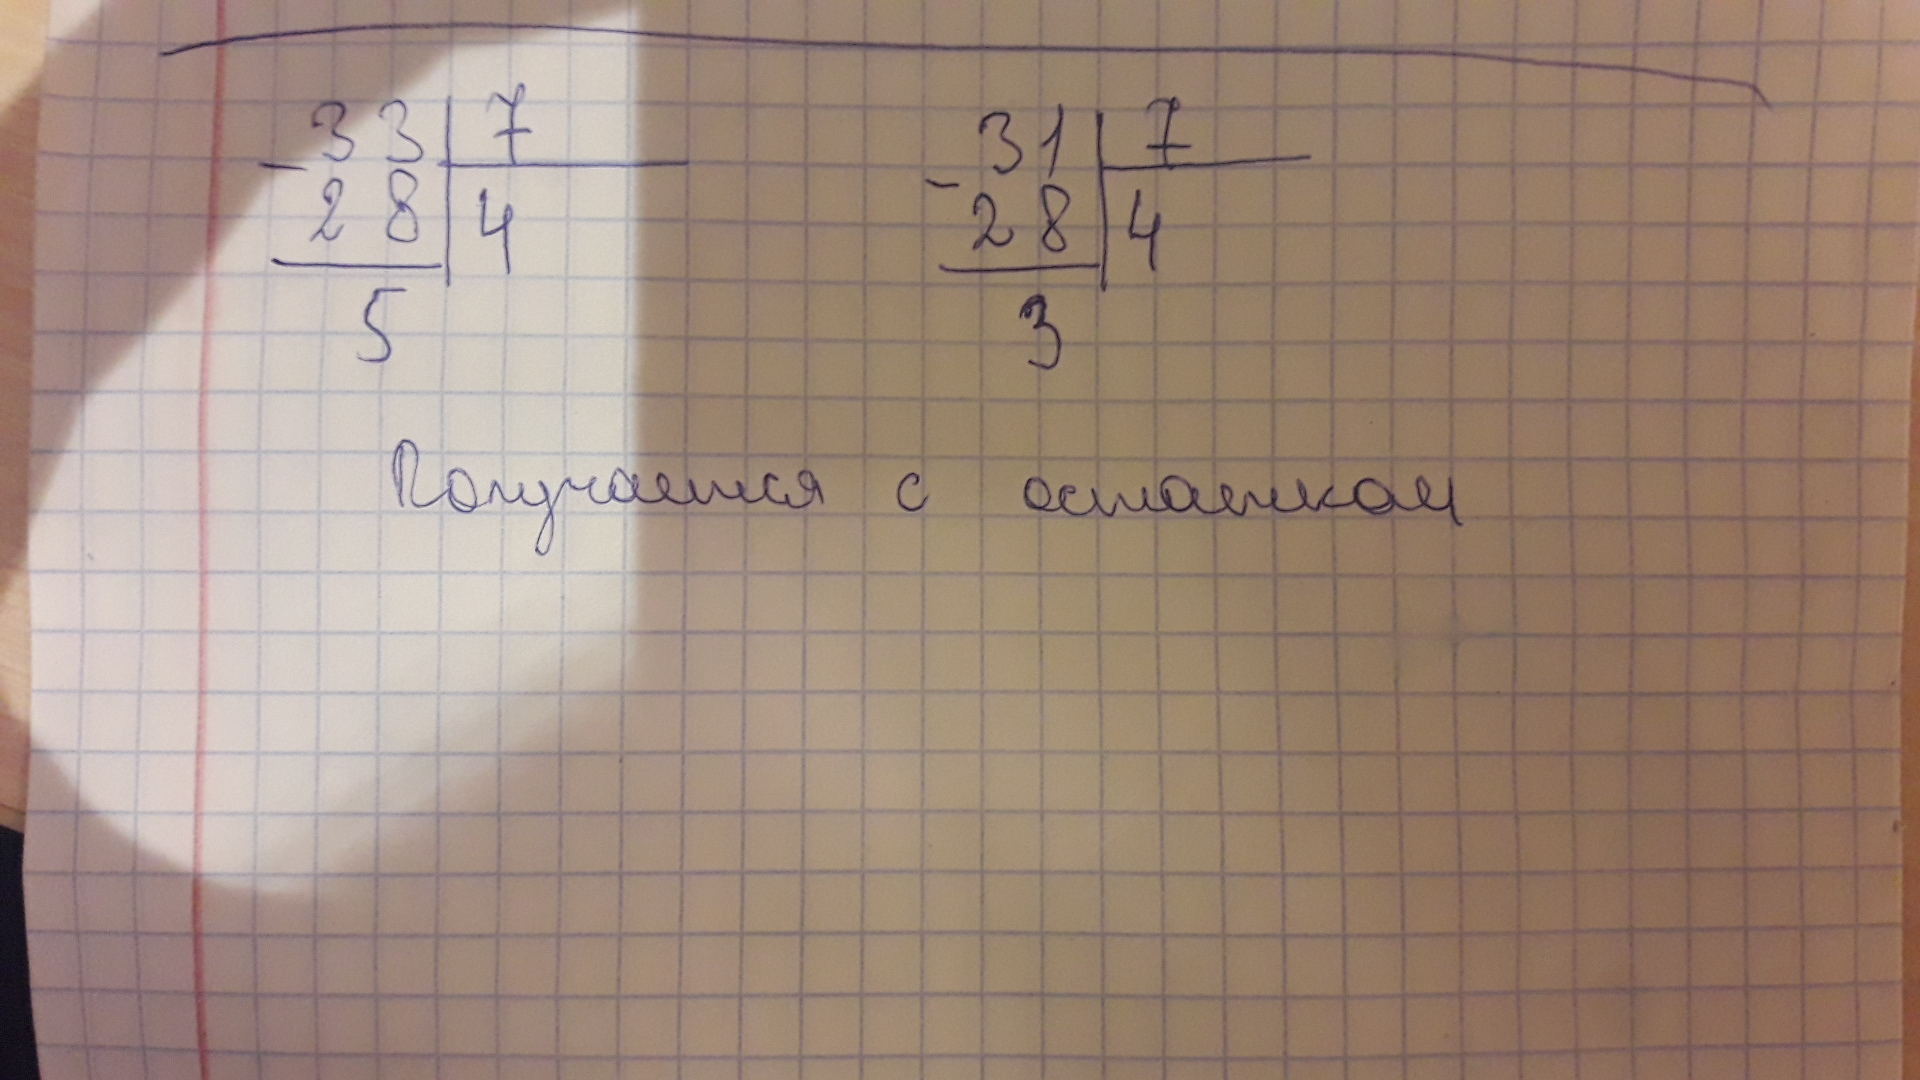 33 7
- 28 4
5
31 7
- 28 4
3
Получается с остатком